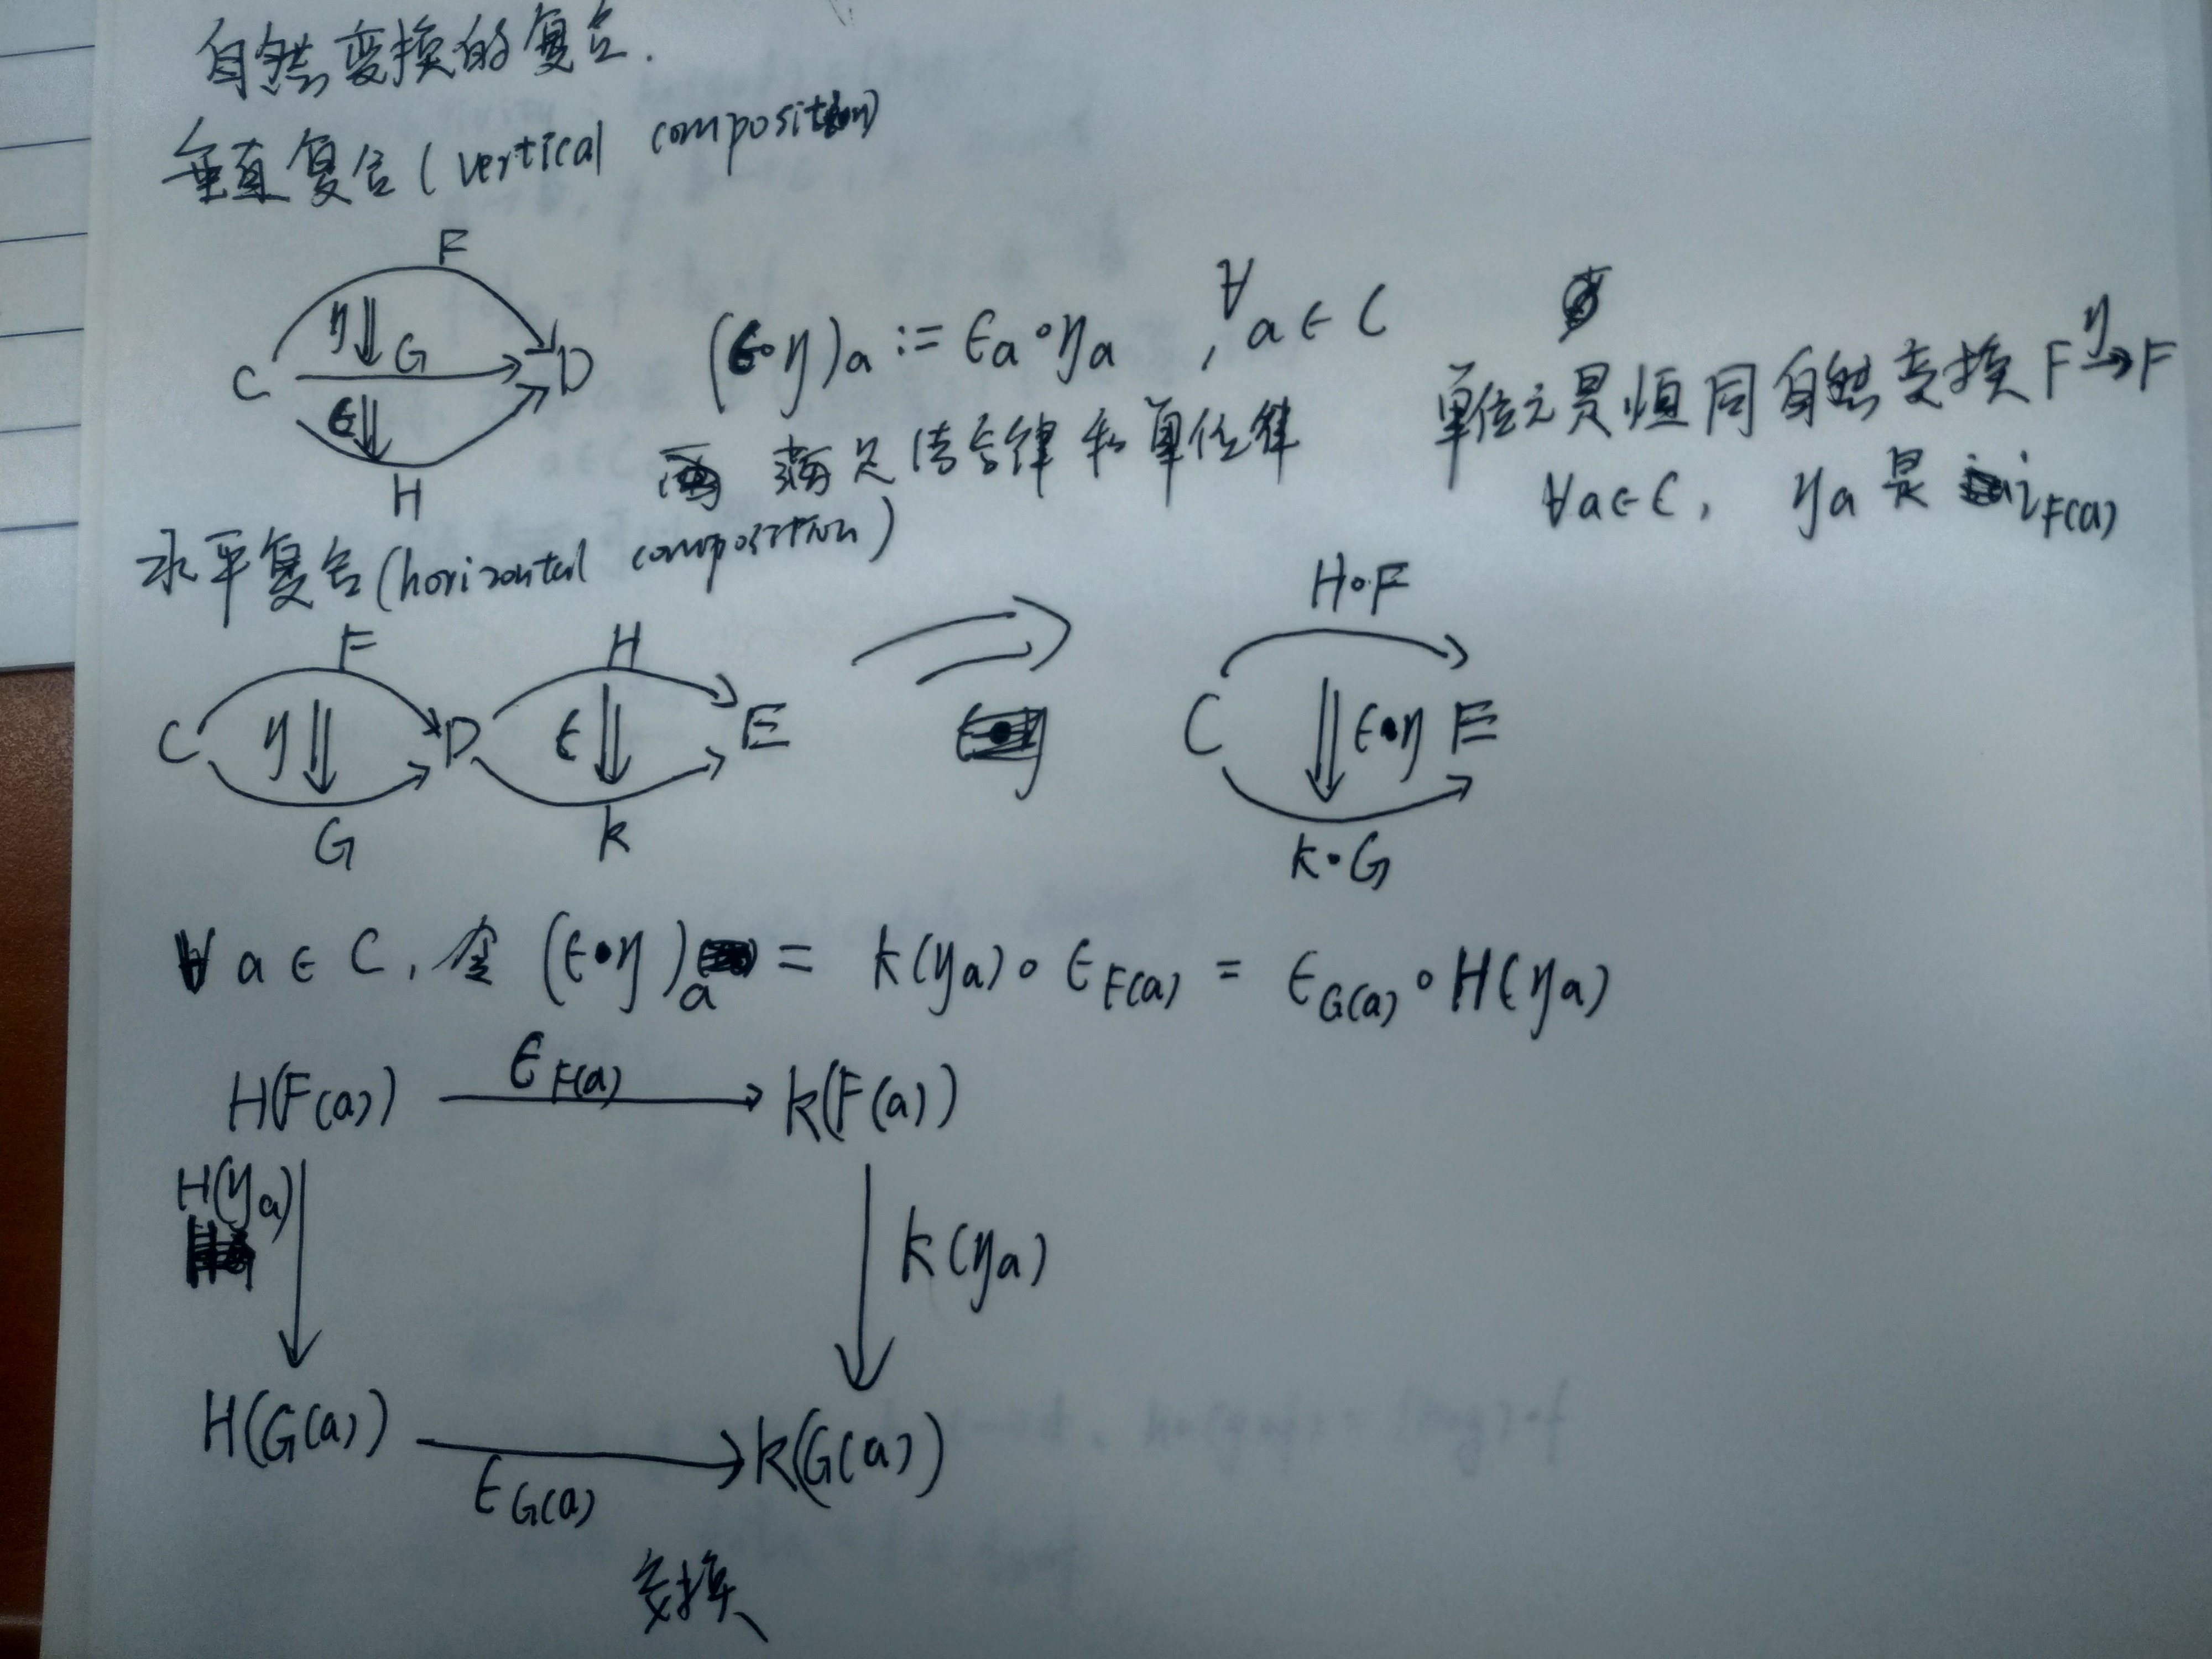 自然变换的复合.
垂直复合(vertical composition)
F
η G
C D
ϵ
H
(ϵ∘η)a := ϵa∘ηa , ∀a∈C
满足结合律和单位律
单位元是恒同自然变换 F →η F
∀a∈C, ηa是 iF(a)
水平复合(horizontal composition)
F H H∘F
C η D ϵ E C ϵ•η E
G K K•G
∀a∈C, 令 (ϵ•η)a = K(ηa)∘ϵF(a) = ϵG(a)∘H(ηa)
ϵF(a)
H(F(a)) → K(F(a))
H(ηa) K(ηa)
H(G(a)) → K(G(a))
ϵG(a)
交换